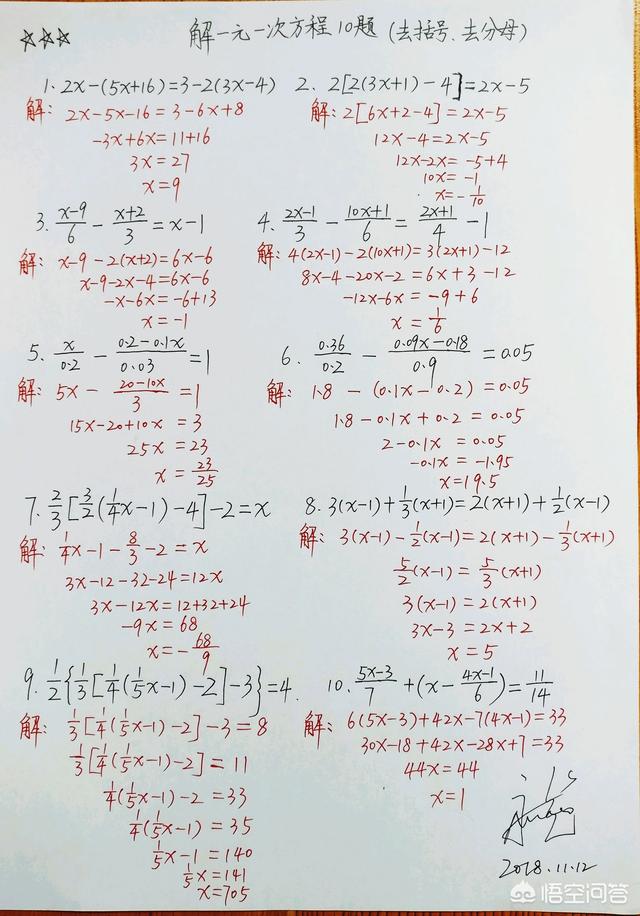 ☆☆☆ 解一元一次方程10题（去括号、去分母）
1. 2x-(5x+16)=3-2(3x-4)
解: 2x-5x-16=3-6x+8
-3x+6x=11+16
3x=27
x=9
2. 2[2(3x+1)-4]=2x-5
解: 2[6x+2-4]=2x-5
12x-4=2x-5
12x-2x=-5+4
10x=-1
x=-1/10
3. (x-9)/6 - (x+2)/3 = x-1
解: x-9-2(x+2)=6x-6
x-9-2x-4=6x-6
-x-6x=-6+13
x=-1
4. (2x-1)/3 - (10x+1)/6 = (2x+1)/4 - 1
解: 4(2x-1)-2(10x+1)=3(2x+1)-12
8x-4-20x-2=6x+3-12
-12x-6x=-9+6
x=1/6
5. x/0.2 - (0.2-0.1x)/0.03 = 1
解: 5x - (20-10x)/3 = 1
15x-20+10x=3
25x=23
x=23/25
6. 0.36/0.2 - (0.09x-0.18)/0.9 = 0.05
解: 1.8-(0.1x-0.2)=0.05
1.8-0.1x+0.2=0.05
2-0.1x=0.05
-0.1x=-1.95
x=19.5
7. 2/3[3/2(1/4x-1)-4]-2=x
解: 1/4x-1-8/3-2=x
3x-12-32-24=12x
3x-12x=12+32+24
-9x=68
x=-68/9
8. 3(x-1)+1/3(x+1)=2(x+1)+1/2(x-1)
解: 3(x-1)-1/2(x-1)=2(x+1)-1/3(x+1)
5/2(x-1)=5/3(x+1)
3(x-1)=2(x+1)
3x-3=2x+2
x=5
9. 1/2{1/3[1/4(1/5x-1)-2]-3}=4.
解: 1/3[1/4(1/5x-1)-2]-3=8
1/3[1/4(1/5x-1)-2]=11
1/4(1/5x-1)-2=33
1/4(1/5x-1)=35
1/5x-1=140
1/5x=141
x=705
10. (5x-3)/7 + (x-(4x-1)/6) = 11/14
解: 6(5x-3)+42x-7(4x-1)=33
30x-18+42x-28x+7=33
44x=44
x=1
2018.11.12
悟空问答